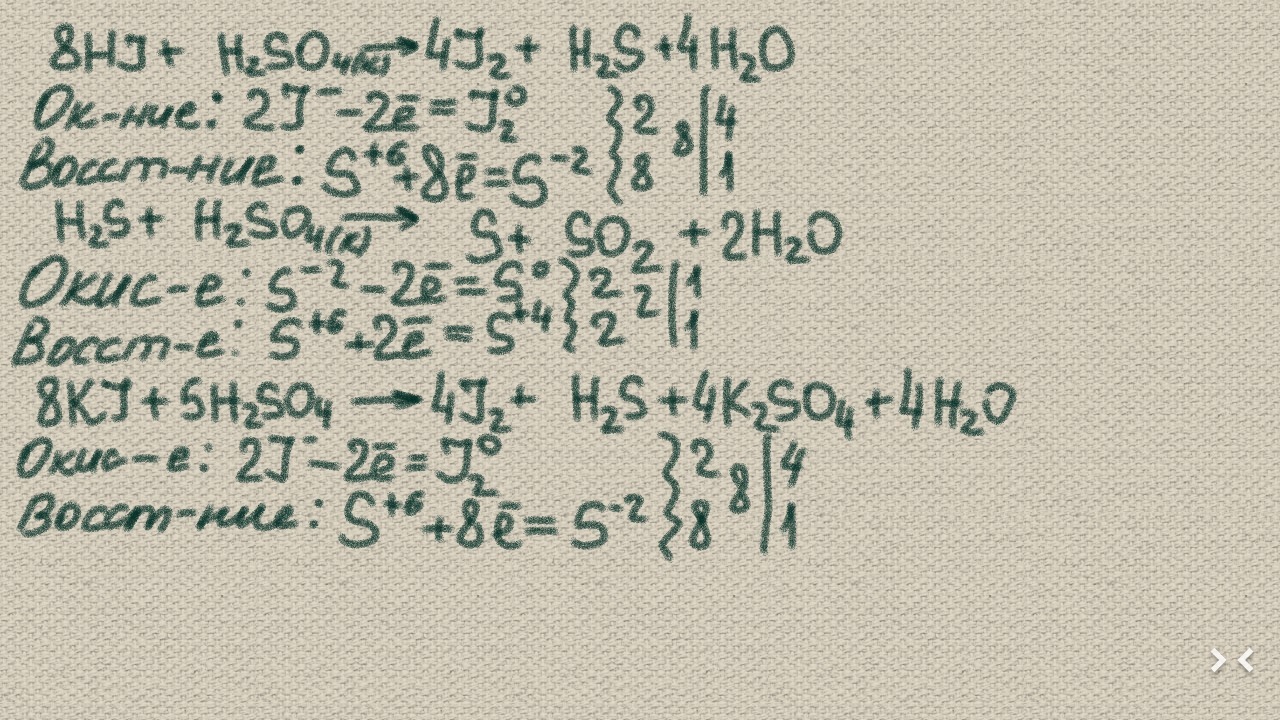 8HJ + H₂SO₄₍ₖ₎ → 4J₂ + H₂S + 4H₂O
Ок-ние: 2J⁻ - 2ē = J₂⁰ } 2 8 | 4
Восст-ние: S⁺⁶ + 8ē = S⁻² } 8 | 1
H₂S + H₂SO₄₍ₖ₎ → S + SO₂ + 2H₂O
Окис-е: S⁻² - 2ē = S⁰ } 2 2 | 1
Восст-е: S⁺⁶ + 2ē = S⁺⁴ } 2 | 1
8KJ + 5H₂SO₄ → 4J₂ + H₂S + 4K₂SO₄ + 4H₂O
Окис-е: 2J⁻ - 2ē = J₂⁰ } 2 8 | 4
Восст-ние: S⁺⁶ + 8ē = S⁻² } 8 | 1